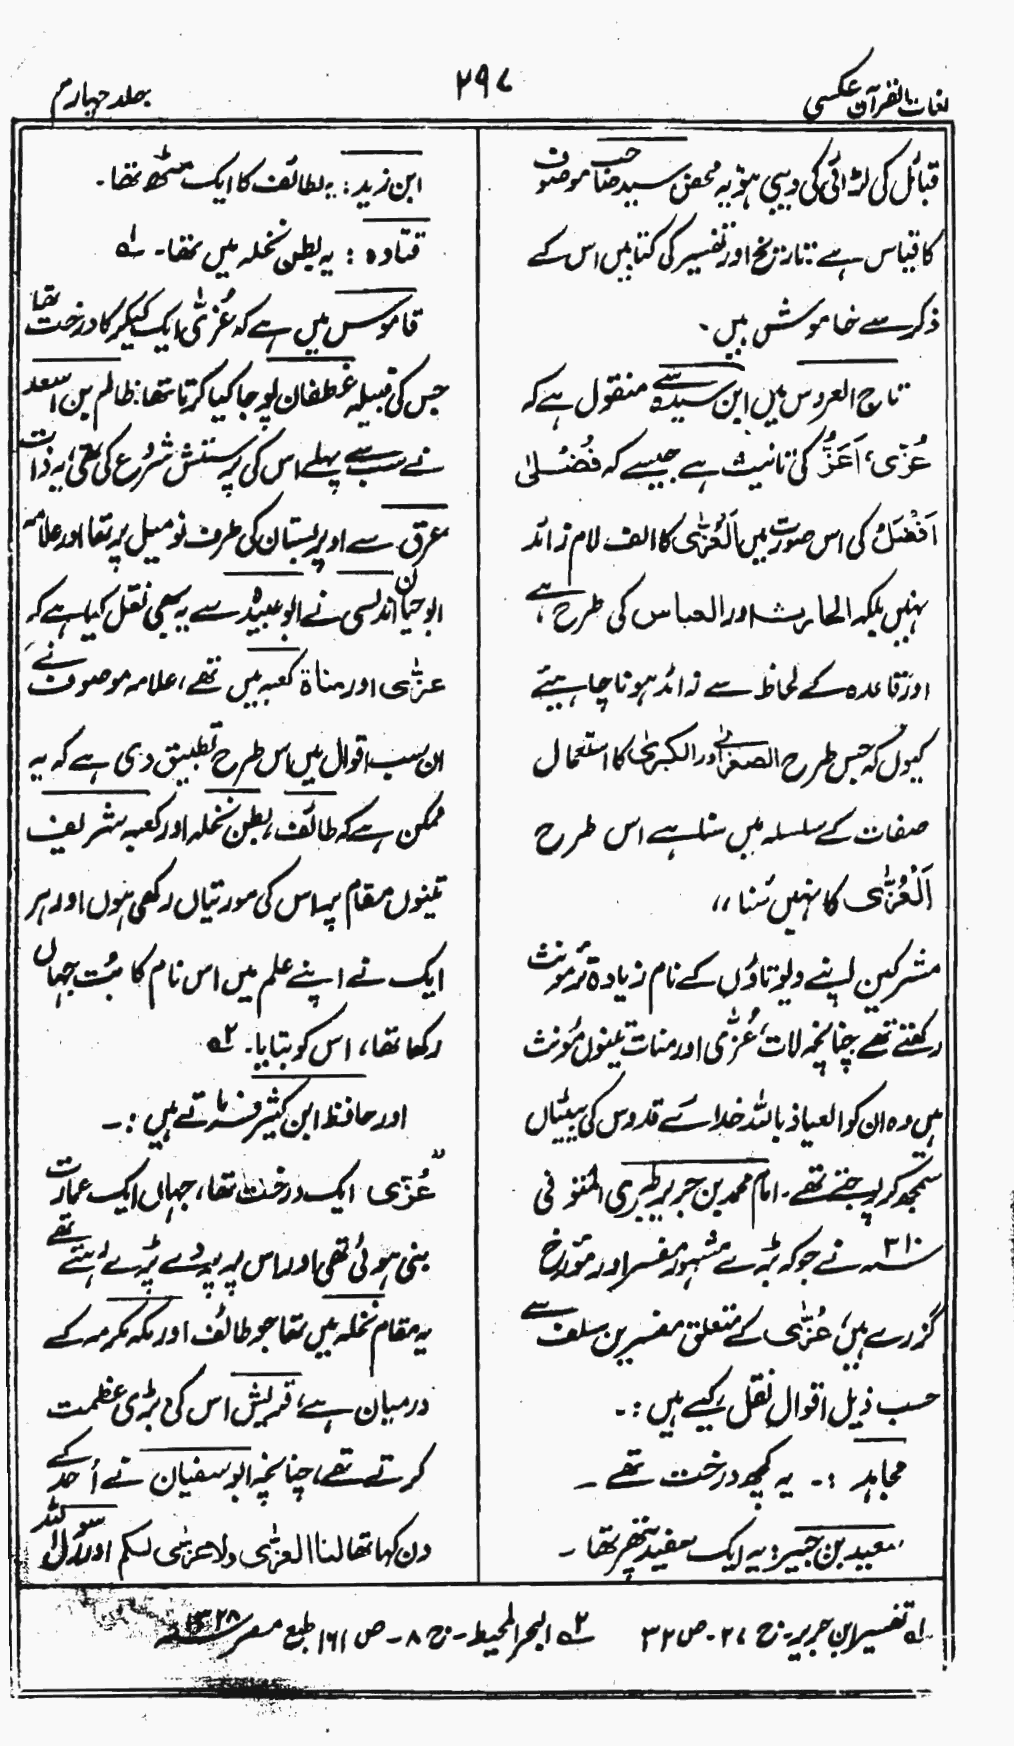 لغات القرآن عکسی
۲۹۷
جلد چہارم
قبائل کی لڑائی کی دیبی ہو یہ محض سید صاحب موصوف
کا قیاس ہے : تاریخ اور تفسیر کی کتابیں اس کے
ذکر سے خاموش ہیں۔
تاج العروس میں ابن سیدہ سے منقول ہے کہ
عُزّٰی، اَعَزُّ کی تانیث ہے جیسے کہ فُضْلیٰ
اَفْضَلُ کی اس صورت میں اَلْعُزّٰی کا الف لام زائد
نہیں بلکہ الحارث اور العباس کی طرح ہے ،
اور قاعدہ کے لحاظ سے زائد ہونا چاہیئے
کیوں کہ جس طرح الصغریٰ اور الکبریٰ کا استعمال
صفات کے سلسلہ میں سنا ہے اس طرح
اَلْعُزّٰی کا نہیں سُنا ،،
مشرکین اپنے دیوتاؤں کے نام زیادہ تر مؤنث
رکھتے تھے چنانچہ لات، عُزّٰی اور منات تینوں مؤنث
ہیں وہ ان کو العیاذ باللہ خدائے قدوس کی بیٹیاں
سمجھ کر پوجتے تھے۔ امام محمد بن جریر طبری المتوفی
۳۱۰ھ نے جو کہ بڑے مشہور مفسر اور مؤرخ
گزرے ہیں، عُزّٰی کے متعلق مفسرین سلف سے
حسب ذیل اقوال نقل کیے ہیں :۔
مجاہد :۔ یہ کچھ درخت تھے ۔
سعید بن جبیر : یہ ایک سفید پتھر تھا ۔
ابن زید : یہ طائف کا ایک مٹھ تھا ۔
قتادہ : یہ بطن نخلہ میں تھا۔ لہ
قاموس میں ہے کہ عُزّٰی ایک کیکر کا درخت تھا
جس کی قبیلہ غطفان پوجا کیا کرتا تھا : ظالم بن اسعد
نے سب سے پہلے اس کی پرستش شروع کی تھی، یہ ذات
عرق سے اوپر بستان کی طرف نو میل پر تھا اور علامہ
ابو حیان اندلسی نے ابو عبیدہ سے یہ بھی نقل کیا ہے کہ
عزّٰی اور مناۃ کعبہ میں تھے، علامہ موصوف نے
ان سب اقوال میں اس طرح تطبیق دی ہے کہ یہ
ممکن ہے کہ طائف، بطن نخلہ اور کعبہ شریف
تینوں مقام پر اس کی مورتیاں رکھی ہوں اور ہر
ایک نے اپنے علم میں اس نام کا بُت جہاں
رکھا تھا، اس کو بتایا۔ ۲ہ
اور حافظ ابن کثیر فرماتے ہیں :۔
”عُزّٰی ایک درخت تھا، جہاں ایک عمارت
بنی ہوئی تھی اور اس پر پردے پڑے رہتے تھے
یہ مقام نخلہ میں تھا جو طائف اور مکہ مکرمہ کے
درمیان ہے، قریش اس کی بڑی عظمت
کرتے تھے، چنانچہ ابو سفیان نے اُحد کے
دن کہا تھا لنا العزّٰی ولا عزّٰی لکم اور رسول اللہ
لہ تفسیر ابن جریر۔ ج ۲۷۔ ص ۳۲ ۲ہ البحر المحیط۔ ج ۸۔ ص ۱۶۱ طبع مصر ۱۳۲۸ھ